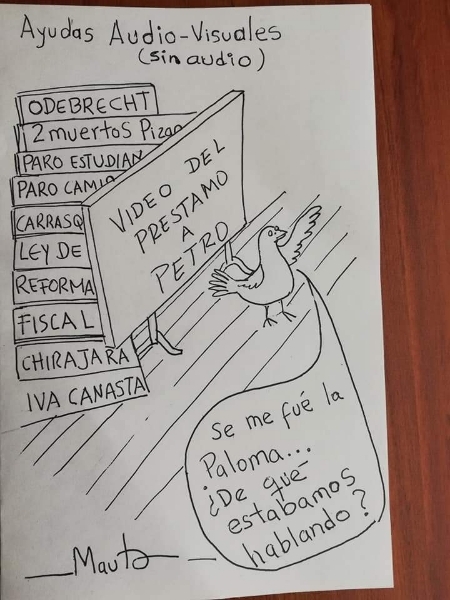 Ayudas Audio-Visuales
(sin audio)
ODEBRECHT
2 muertos Pizano
PARO ESTUDIAN
PARO CAMIO
CARRASQ
LEY DE
REFORMA
FISCAL
CHIRAJARA
IVA CANASTA
VIDEO DEL
PRESTAMO
A
PETRO
Se me fué la
Paloma...
¿De qué
estabamos
hablando?